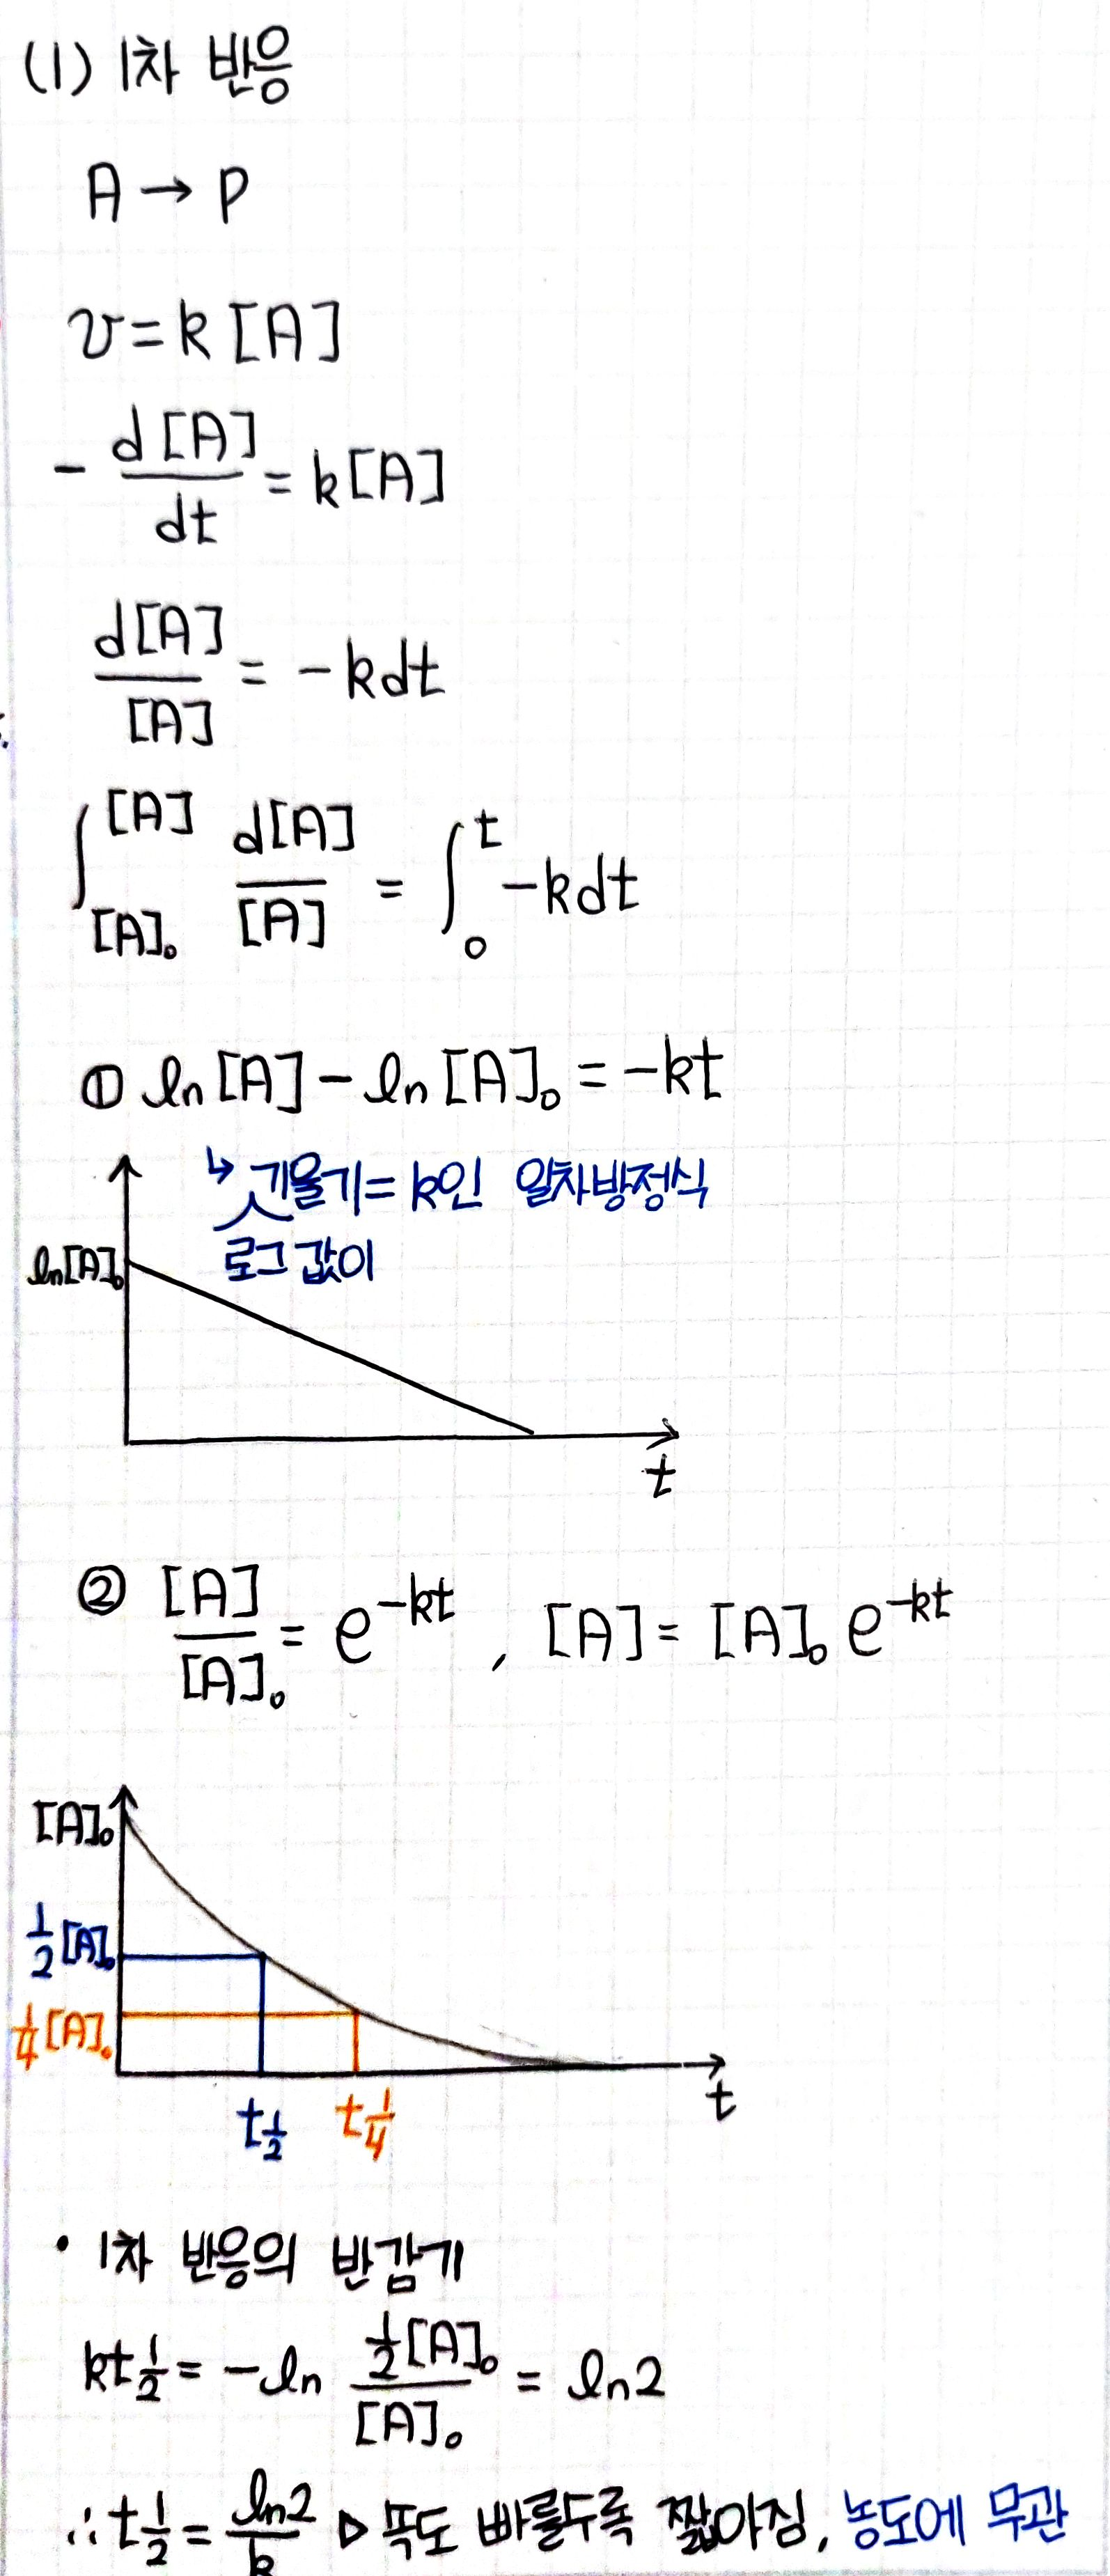 (1) 1차 반응
A → P
v = k[A]
- d[A]/dt = k[A]
d[A]/[A] = -kdt
∫[A]₀^[A] d[A]/[A] = ∫₀^t -kdt
① ln[A] - ln[A]₀ = -kt
↳ 기울기 = k인 일차방정식
로그값이
ln[A]₀
t
② [A]/[A]₀ = e^-kt , [A] = [A]₀ e^-kt
[A]₀
1/2 [A]₀
1/4 [A]₀
t 1/2
t 1/4
t
• 1차 반응의 반감기
kt 1/2 = -ln (1/2 [A]₀)/[A]₀ = ln2
∴ t 1/2 = ln2/k ▷ 폭도 빠를수록 짧아짐, 농도에 무관